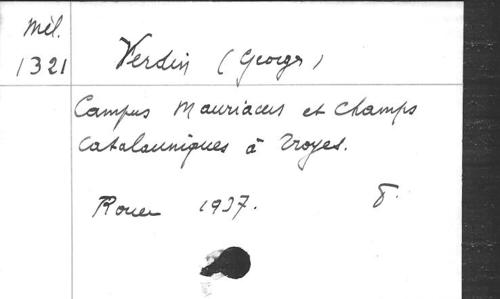 Mél.
1321
Verdin (Georges)
Campus Mauriacus et Champs
Catalauniques à Troyes.
Rouen 1937. 8.